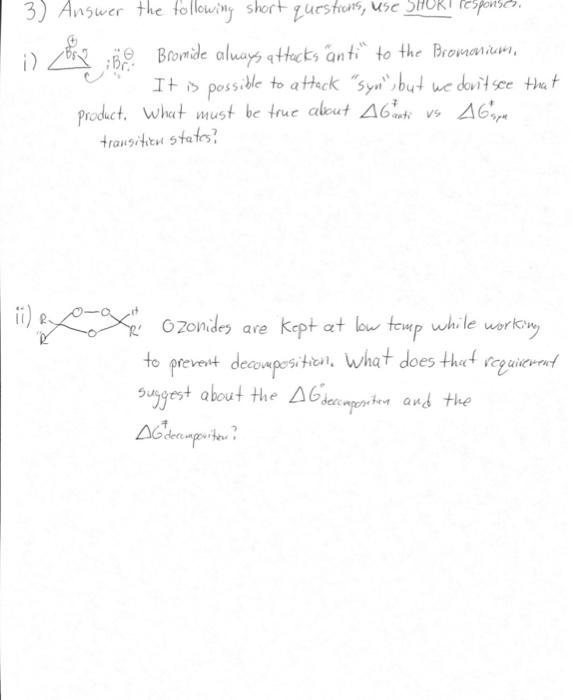 3) Answer the following short questions, use SHORT responses.
i) Br :Br: Bromide always attacks "anti" to the Bromonium.
It is possible to attack "syn", but we don't see that
product. What must be true about ΔG‡anti vs ΔG‡syn
transition states?
ii) R R O-O O H R' Ozonides are kept at low temp while working
to prevent decomposition. What does that requirement
suggest about the ΔG°decomposition and the
ΔG‡decomposition?